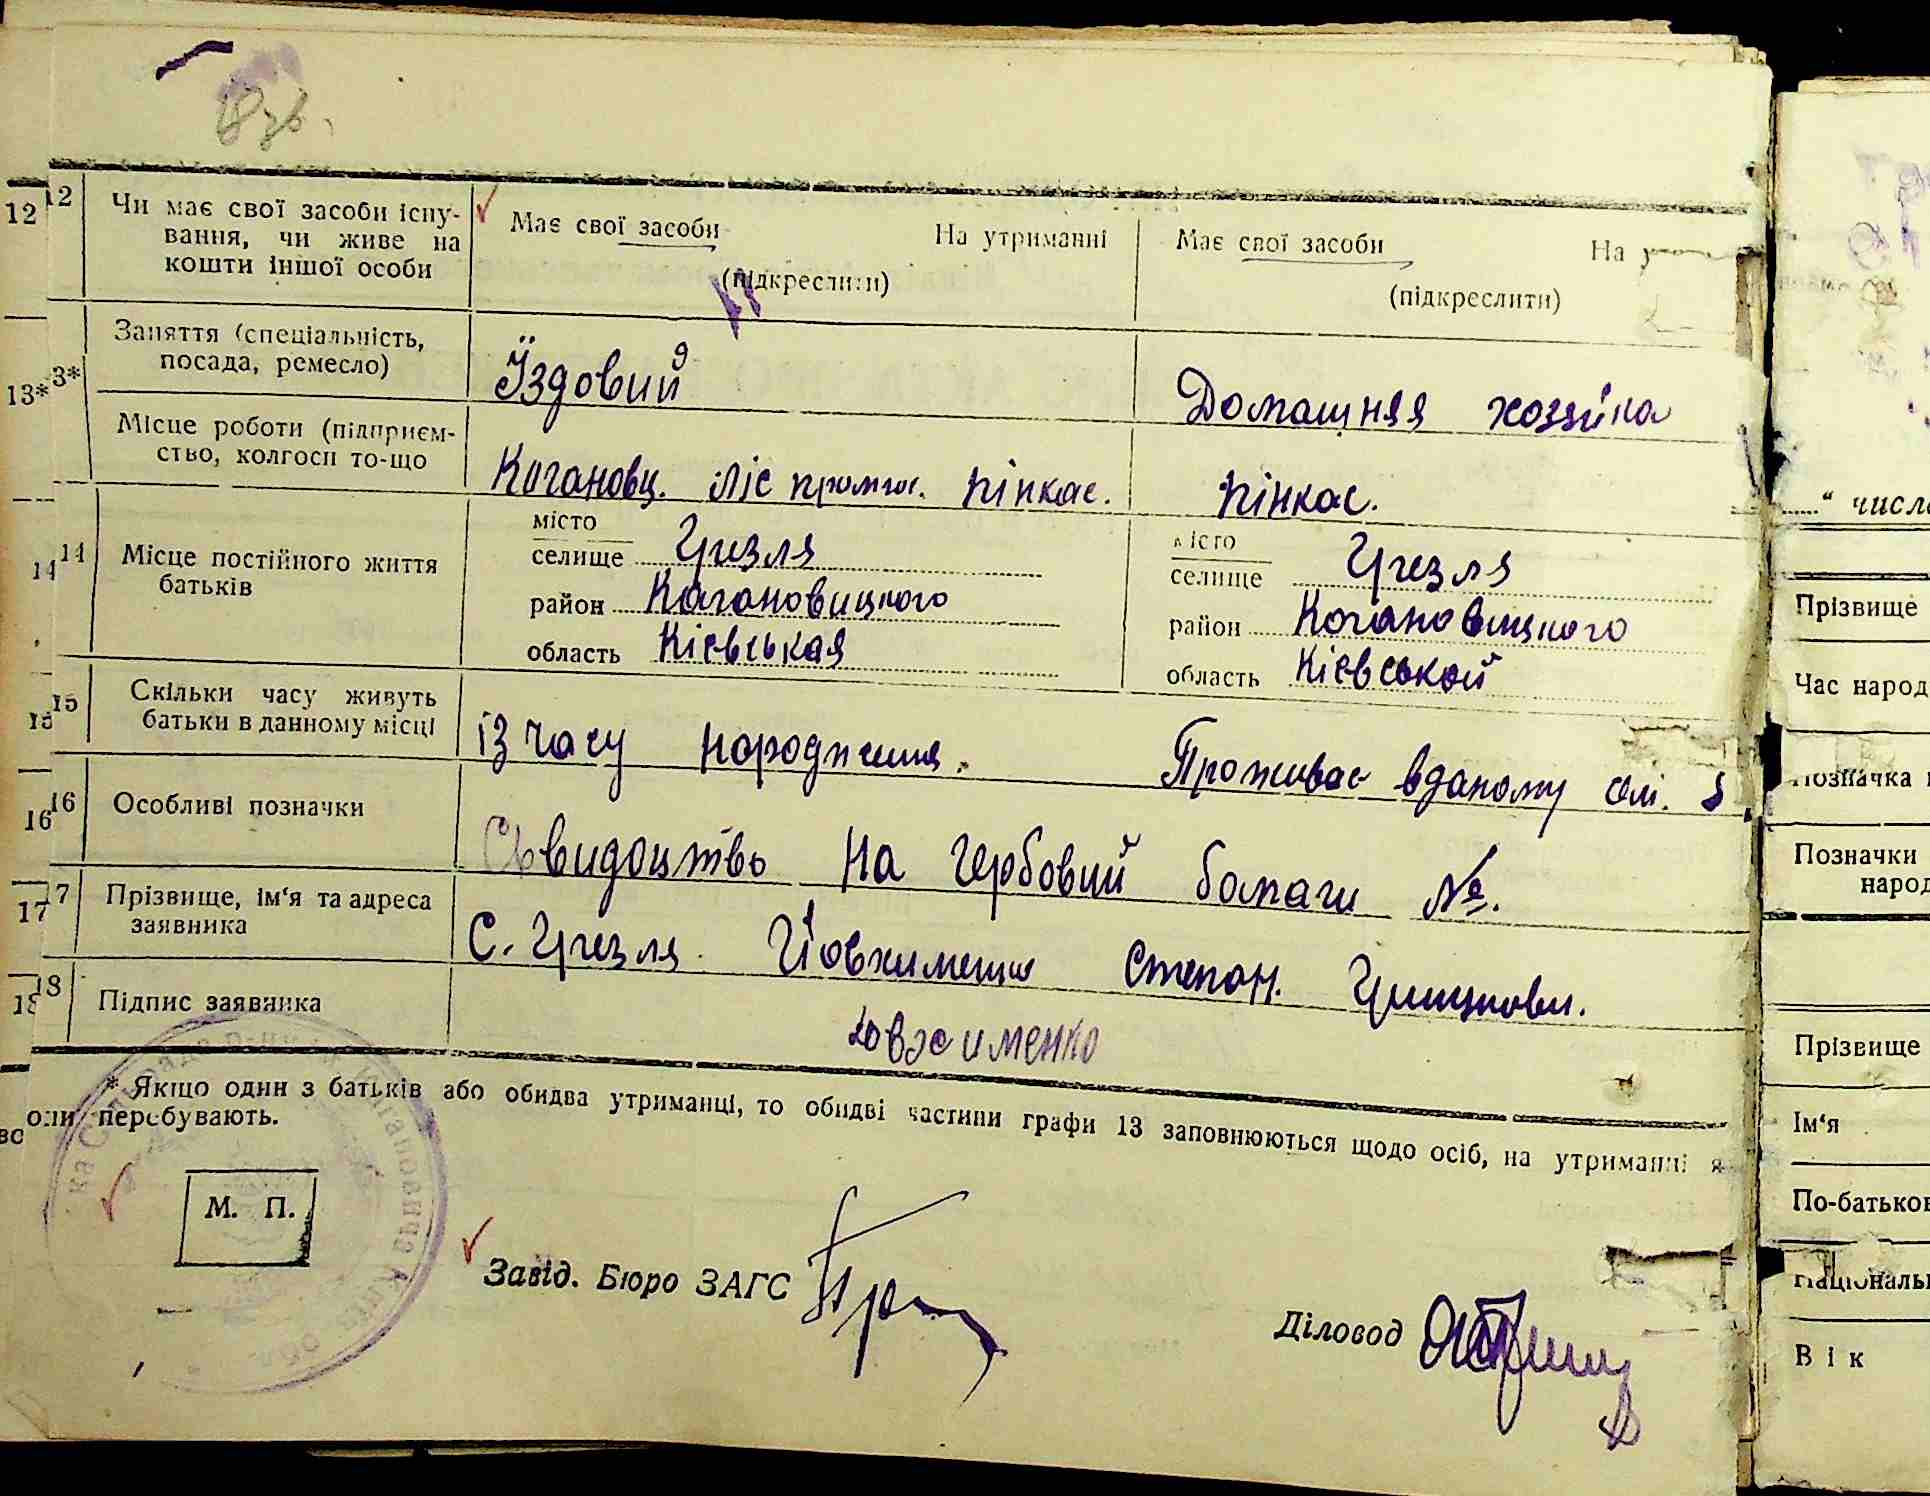 12 12 Чи має свої засоби існу-
вання, чи живе на
кошти іншої особи
Має свої засоби На утриманні
(підкреслити)
Має свої засоби На
(підкреслити)
13* 3* Заняття (спеціальність,
посада, ремесло)
Їздовий
Домашняя хозяйка
Місце роботи (підприєм-
ство, колгосп то-що
Когановц. ліс промгос. Пінкас.
Пінкас.
14 14 Місце постійного життя
батьків
місто
селище Грезля
район Кагановицкого
область Кієвськая
місто
селище Грезля
район Когановицкого
область Кієвськой
15 15 Скільки часу живуть
батьки в данному місці
із часу народження. Проживає вданому селі.
16 16 Особливі позначки
Свидоцтво на гербовий бомаги №.
17 7 Прізвище, ім'я та адреса
заявника
С. Грезля. Йовхименко Степан.
18 18 Підпис заявника
Ювхименко
* Якщо один з батьків або обидва утриманці, то обидві частини графи 13 заповнюються щодо осіб, на утриманні я
оли перебувають.
М. П.
Завід. Бюро ЗАГС
Діловод
" числа
Прізвище
Час народ
Позначка
Позначки
народ
Прізвище
Ім'я
По-батьков
Національ
Вік